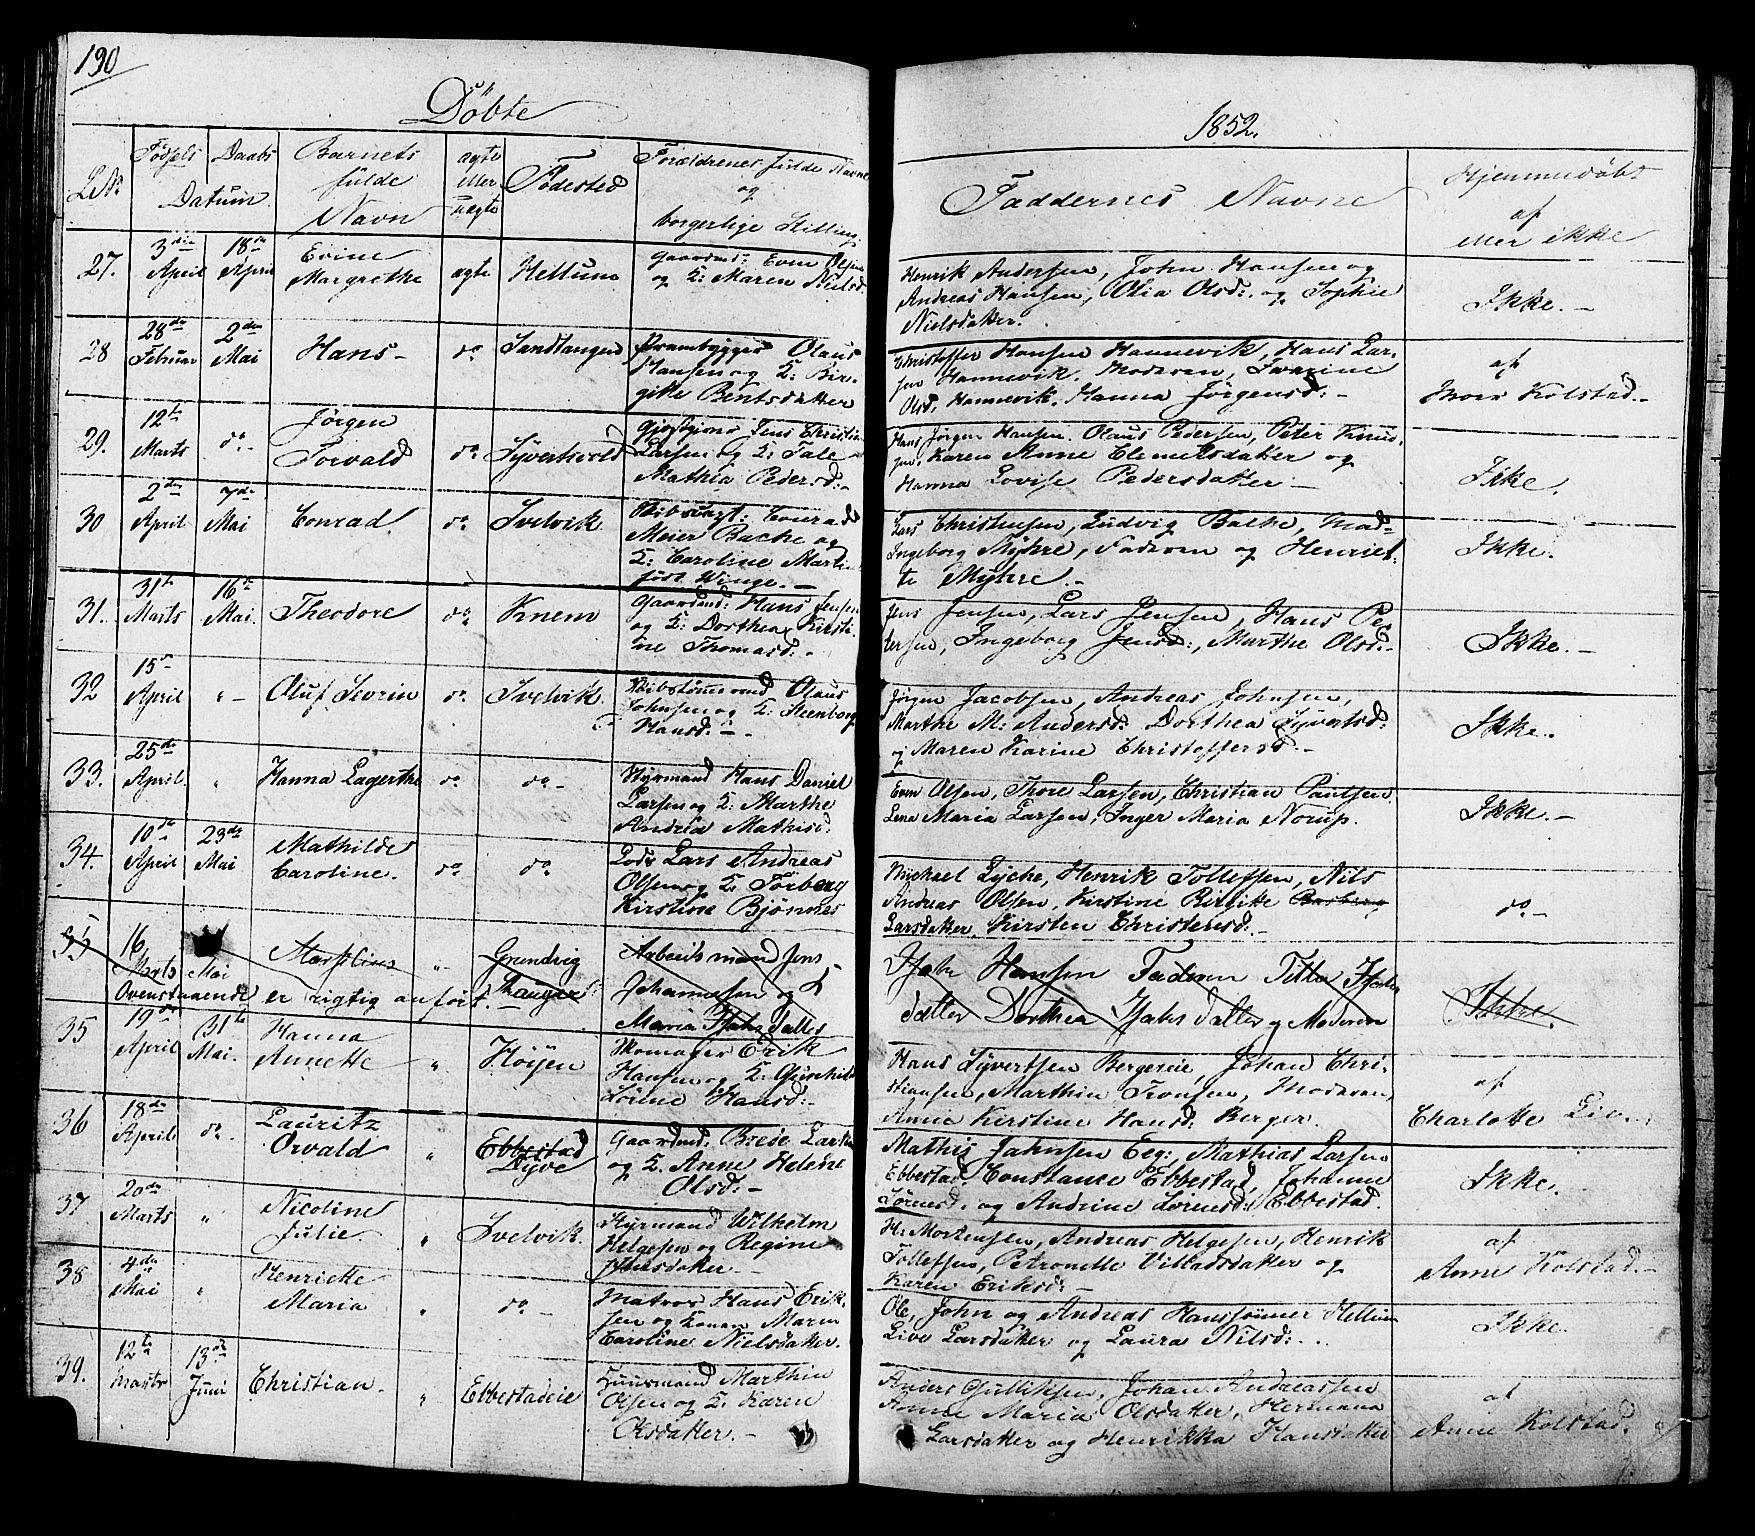 190
Döbte
1852.
LNo
Fødsels
Daabs
Datum
Barnets
fulde
Navn
ægte
eller
uægte
Fødested
Forældrenes fulde Navne
og
borgerlige Stilling
Faddernes Navne
Hjemmedøbt
af
eller ikke
27.
3die
April
18de
April
Evine
Margrethe
ægte
Hellum
Gaardmd: Even Olsen
og K: Maren Nielsd
Henrik Andersen, John Hansen og
Andreas Hansen, Olia Olsd: og Sophie
Nielsdatter.
Ikke. —
28
28de
Februar
2den
Mai
Hans —
do
Sandtangen
Prambygger Olaus
Hansen og K: Bir-
gitte Bentsdatter
Christoffer Hansen Hannevik, Hans Lar-
sen Hannevik. Moderen, Severine
Olsd. Hannevik. Hanna Jørgensd: —
af
Moer Kolstad. —
29.
12te
Marts
do —
Jørgen
Torvald
do
Syverhvold
Jens Christian
Larsen og K: Tale
Mathia Pedersd: —
Hans Jørgen Hansen. Olaus Pedersen, Peter Knud-
sen. Karen Anne Clemetsdatter og
Hanna Lovise Pedersdatter —
Ikke.
30
2den
April
7de
Mai
Conrad
do
Svelvik
Conrad
Meier Bache og
K: Caroline Martine
født Winge. —
Lars Christensen, Ludvig Bache, Mad-
Ingeborg Myhre, Faderen og Henriet-
te Myhre. —
Ikke.
31.
31te
Marts
16de
Mai.
Theodore
do
Knem
Gaardmd: Hans Jensen
og K: Dorthea Kirsti-
ne Thomasd: .
Jens Jensen, Lars Jensen, Hans Pe-
tersen, Ingeborg Jensd:, Marthe Olsd: —
Ikke. —
32
15de
April
" —
Oluf Severin
do
Svelvik
Skibstømmermd Olaus
Johnsen og K: Steenborg
Hansd: —
Jørgen Jacobsen, Andreas Johnsen,
Marthe M: Andersd: Dorthea Syvertsd:
og Maren Karine Christoffersd: —
Ikke.
33.
25de
April
"
Hanna Lagerthe
do
do —
Styrmand Hans Daniel
Larsen og K: Marthe
Andrea Mathisd:
Even Olsen, Thore Larsen, Christian Paulsen
Lene Maria Larsen, Inger Maria Norup.
Ikke. —
34.
10de
April
23de
Mai
Mathilde
Caroline.
do
do
Lods Lars Andreas
Olsen og K: Torberg
Kirstine Bjønnes
Michael Lyche, Henrik Tollefsen, Nils
Andreas Olsen, Kirstine Birgitte
Larsdatter. Kirsten Christensd: —
do —
35
16
Marts
Mai
"
Grundvig
Arbeidsmand Jens
Johannesen og K
Maria
Hansen Faderen
datter Dorthea datter og Moderen
Ikke.
Ovenstaaende er rigtig anført.
35
19de
April
31te
Mai.
Hanna
Annette
"
Høyen
Skomager Erik
Hansen og K: Gunhild
Lovine Hansd: —
Hans Syvertsen Bergereie, Johan Chri-
stiansen, Marthin Tronsen, Moderen,
Annie Kirstine Hansd: Berger.
af
Charlotte
36
18de
April
do.
Lauritz
Orvald
"
Ebbestad
Dyve
Gaardmd. Brede Larsen
og K. Anne Helene
Olsd: —
Mathis Jahnsen Eeg, Mathias Larsen
Ebbestad, Constance Ebbestad, Johanne
Sørensd. og Andrine Sørensd: Ebbestad.
Ikke.
37
20de
Marts
"
Nicoline
Julie.
"
Svelvik.
Styrmand Wilhelm
Helgesen og Regine
H: Mortensen, Andreas Helgesen, Henrik
Tollefsen, Petronelle Villadsdatter og
Karen Eriksd: —
af
Anne Kolstad. —
38
4de
Mai
"
Henriette
Maria
"
do —
Matros Hans Erik-
sen og Konen Maren
Caroline Nielsdatter.
Ole, John og Andreas Hanssønner Hellum
Live Larsdatter og Laura Nilsd: . .
Ikke.
39.
12te
Marts
13de
Juni
Christian.
"
Ebbestadeie
Huusmand Marthin
Olsen og K. Karen
Olsdatter. —
Anders Gulliksen. Johan Andreassen
Anne Maria Olsdatter, Hermana
Larsdatter og Henrikka Hansdatter
af
Anne Kolstad.